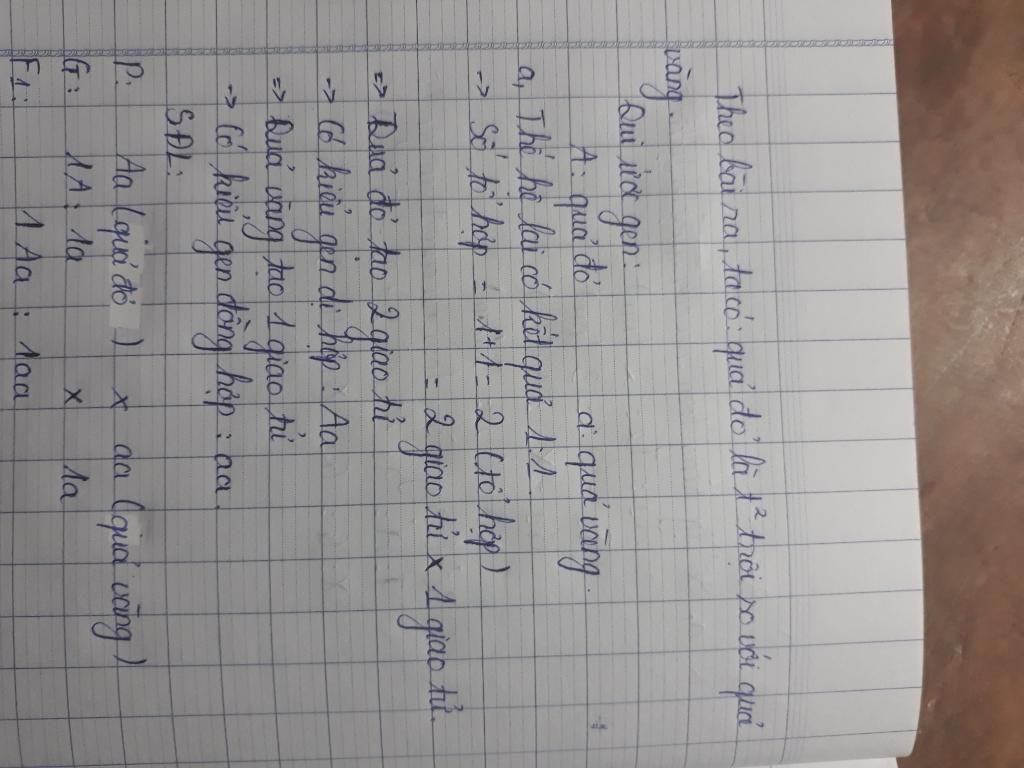 Theo bài ra, ta có: quả đỏ là t² trội so với quả
vàng.
Qui ước gen:
A: quả đỏ a: quả vàng.
a, Thế hệ lai có kết quả 1:1.
-> Số tổ hợp = 1+1 = 2 (tổ hợp)
= 2 giao tử x 1 giao tử.
=> Quả đỏ tạo 2 giao tử
-> Có kiểu gen dị hợp: Aa
=> Quả vàng tạo 1 giao tử
-> Có kiểu gen đồng hợp: aa.
SĐL:
P: Aa (quả đỏ) x aa (quả vàng)
G: 1A : 1a x 1a
F1: 1 Aa : 1aa